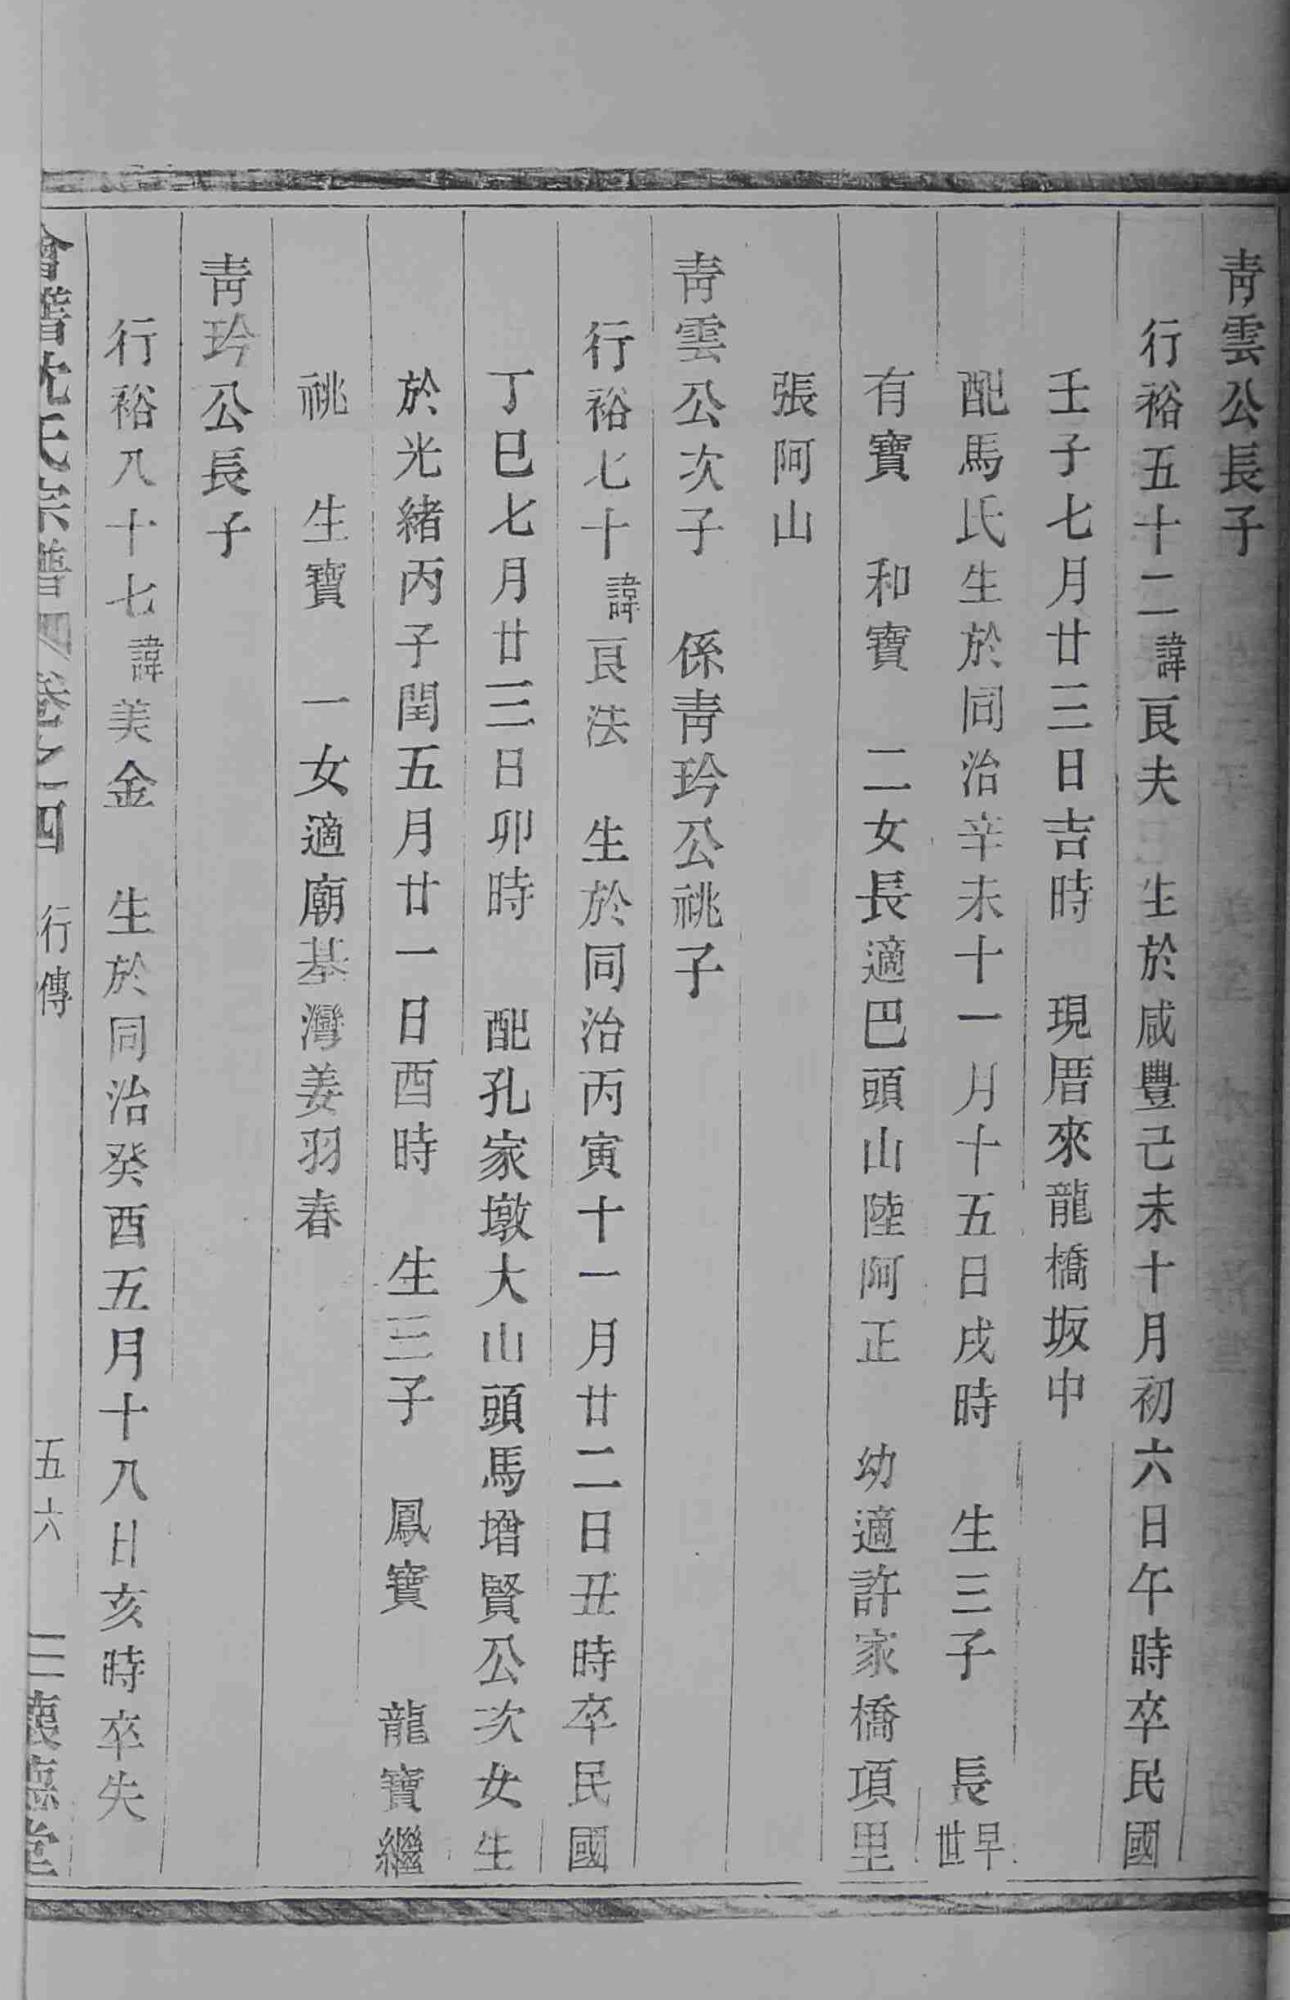 青雲公長子
行裕五十二諱良夫生於咸豐己未十月初六日午時卒民國
壬子七月廿三日吉時　現厝來龍橋坂中
配馬氏生於同治辛未十一月十五日戌時　生三子　長早世
有寶　和寶　二女長適巴頭山陸阿正　幼適許家橋項里
張阿山
青雲公次子　係青玪公祧子
行裕七十諱良法　生於同治丙寅十一月廿二日丑時卒民國
丁巳七月廿三日卯時　配孔家墩大山頭馬增賢公次女生
於光緒丙子閏五月廿一日酉時　生三子　鳳寶　龍寶繼
祧　生寶　一女適廟基灣姜羽春
青玪公長子
行裕八十七諱美金　生於同治癸酉五月十八日亥時卒失
會稽沈氏宗譜　卷之四　行傳　五六　三德堂